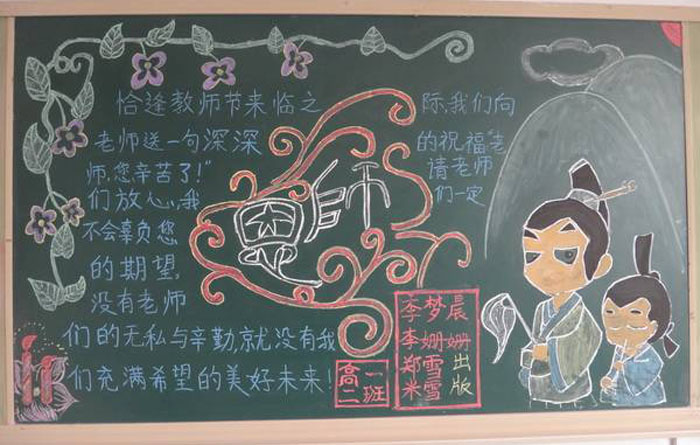 恰逢教师节来临之际,我们向
老师送一句深深的祝福"老
师,您辛苦了!"请老师
们放心,我们一定
不会辜负您
的期望,
没有老师
们的无私与辛勤,就没有我
们充满希望的美好未来!
恩师
高二
一班
李梦晨
李姗姗
郑雪
米雪
出版